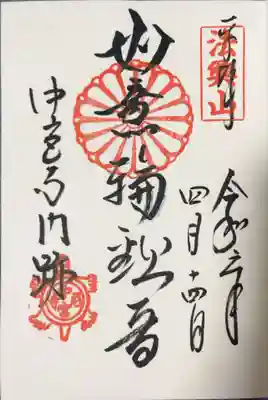 法興山
令和六年
四月十四日
如意輪観音
中宮寺門跡